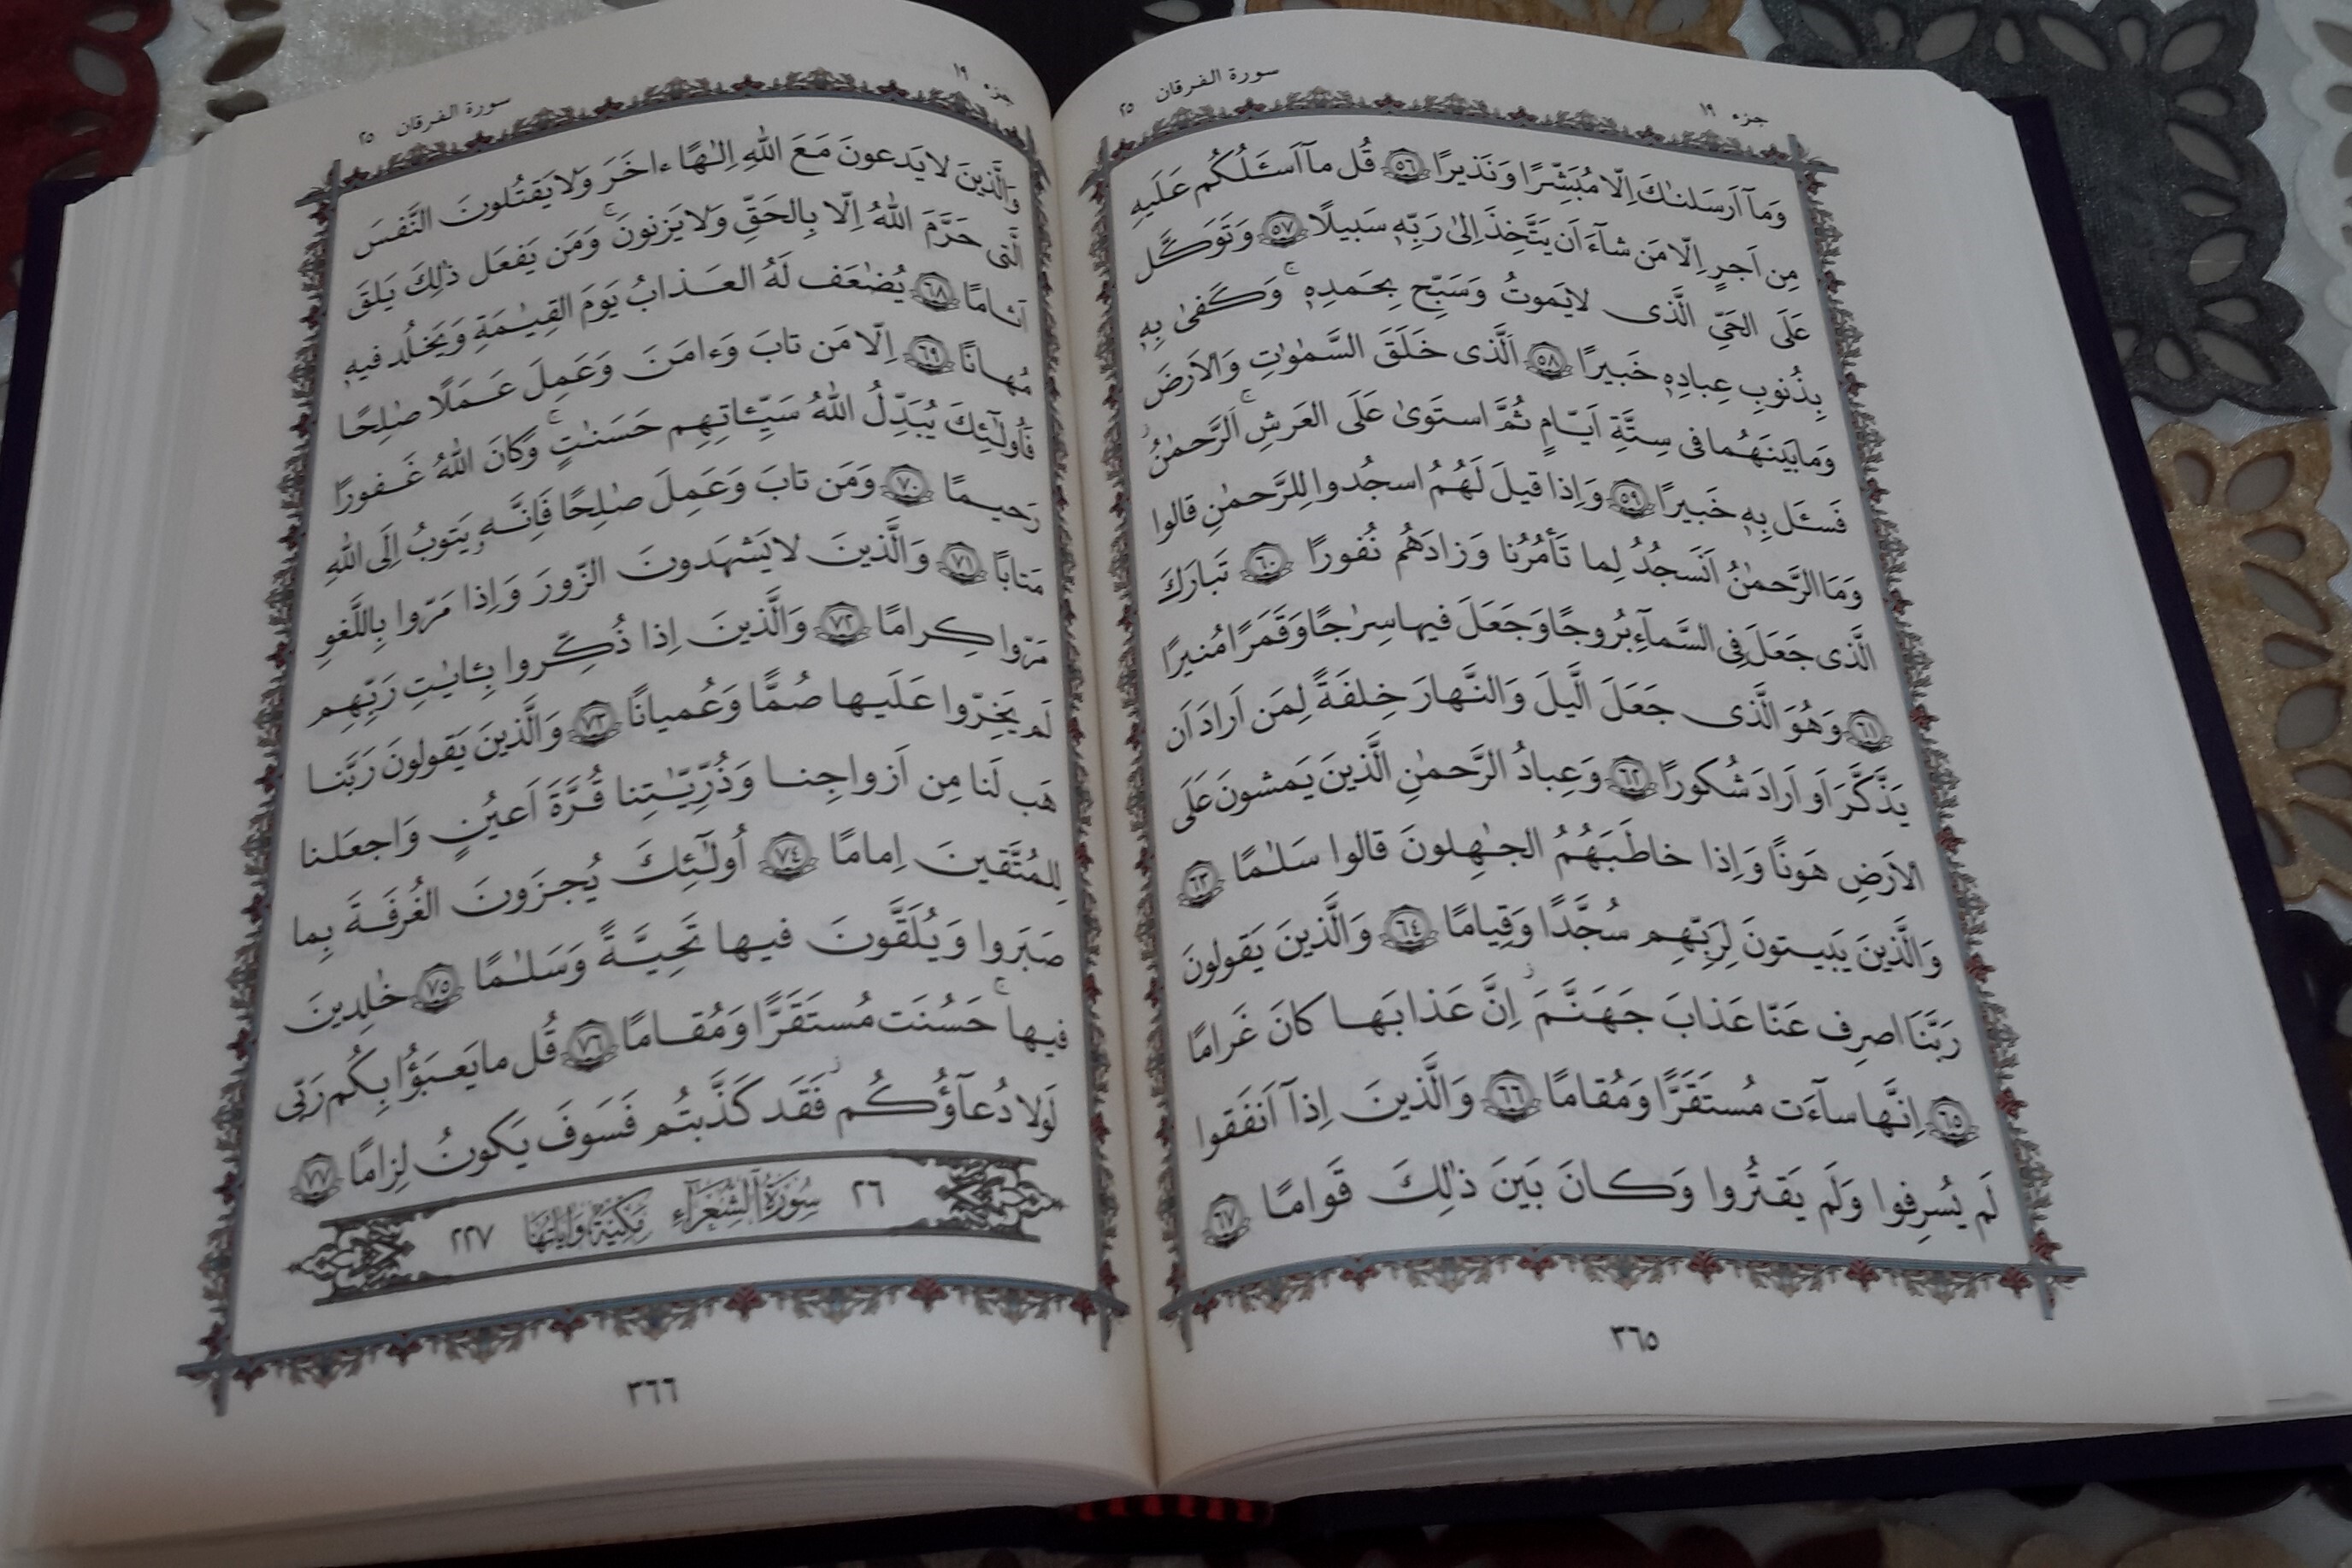 جزء ١٩
سورة الفرقان ٢٥
وَمآ اَرسَلنٰكَ اِلّا مُبَشِّرًا وَنَذيرًا ﴿٥٦﴾ قُل مآ اَسـَٔلُكُم عَلَيهِ
مِن اَجرٍ اِلّا مَن شآءَ اَن يَتَّخِذَ اِلىٰ رَبِّهٖ سَبيلًا ﴿٥٧﴾ وَتَوَكَّل
عَلَى الحَىِّ الَّذى لايَموتُ وَسَبِّح بِحَمدِهٖ ۚ وَكَفىٰ بِهٖ
بِذُنوبِ عِبادِهٖ خَبيرًا ﴿٥٨﴾ اَلَّذى خَلَقَ السَّمٰوٰتِ وَالاَرضَ
وَمابَينَهُما فى سِتَّةِ اَيّامٍ ثُمَّ استَوىٰ عَلَى العَرشِ ۚ اَلرَّحمٰنُ
فَسـَٔل بِهٖ خَبيرًا ﴿٥٩﴾ وَاِذا قيلَ لَهُمُ اسجُدوا لِلرَّحمٰنِ قالوا
وَمَا الرَّحمٰنُ اَنَسجُدُ لِما تَأمُرُنا وَزادَهُم نُفورًا ﴿٦٠﴾ تَبارَكَ
الَّذى جَعَلَ فِى السَّمآءِ بُروجًا وَجَعَلَ فيها سِرٰجًا وَقَمَرًا مُنيرًا
﴿٦١﴾ وَهُوَ الَّذى جَعَلَ الَّيلَ وَالنَّهارَ خِلفَةً لِمَن اَرادَ اَن
يَذَّكَّرَ اَو اَرادَ شُكورًا ﴿٦٢﴾ وَعِبادُ الرَّحمٰنِ الَّذينَ يَمشونَ عَلَى
الاَرضِ هَونًا وَاِذا خاطَبَهُمُ الجٰهِلونَ قالوا سَلٰمًا ﴿٦٣﴾
وَالَّذينَ يَبيتونَ لِرَبِّهِم سُجَّدًا وَقِيامًا ﴿٦٤﴾ وَالَّذينَ يَقولونَ
رَبَّنَا اصرِف عَنّا عَذابَ جَهَنَّمَ ۖ اِنَّ عَذابَها كانَ غَرامًا
﴿٦٥﴾ اِنَّها سآءَت مُستَقَرًّا وَمُقامًا ﴿٦٦﴾ وَالَّذينَ اِذآ اَنفَقوا
لَم يُسرِفوا وَلَم يَقتُروا وَكانَ بَينَ ذٰلِكَ قَوامًا ﴿٦٧﴾
٣٦٥
جزء ١٩
سورة الفرقان ٢٥
وَالَّذينَ لايَدعونَ مَعَ اللّٰهِ اِلٰهًا ءاخَرَ وَلايَقتُلونَ النَّفسَ
الَّتى حَرَّمَ اللّٰهُ اِلّا بِالحَقِّ وَلايَزنونَ ۚ وَمَن يَفعَل ذٰلِكَ يَلقَ
اَثامًا ﴿٦٨﴾ يُضٰعَف لَهُ العَذابُ يَومَ القِيٰمَةِ وَيَخلُد فيهٖ
مُهانًا ﴿٦٩﴾ اِلّا مَن تابَ وَءامَنَ وَعَمِلَ عَمَلًا صٰلِحًا
فَاُولٰٓئِكَ يُبَدِّلُ اللّٰهُ سَيِّـٔاتِهِم حَسَنٰتٍ ۚ وَكانَ اللّٰهُ غَفورًا
رَحيمًا ﴿٧٠﴾ وَمَن تابَ وَعَمِلَ صٰلِحًا فَاِنَّهٗ يَتوبُ اِلَى اللّٰهِ
مَتابًا ﴿٧١﴾ وَالَّذينَ لايَشهَدونَ الزّورَ وَاِذا مَرّوا بِاللَّغوِ
مَرّوا كِرامًا ﴿٧٢﴾ وَالَّذينَ اِذا ذُكِّروا بِـٔايٰتِ رَبِّهِم
لَم يَخِرّوا عَلَيها صُمًّا وَعُميانًا ﴿٧٣﴾ وَالَّذينَ يَقولونَ رَبَّنا
هَب لَنا مِن اَزواجِنا وَذُرِّيّٰتِنا قُرَّةَ اَعيُنٍ وَاجعَلنا
لِلمُتَّقينَ اِمامًا ﴿٧٤﴾ اُولٰٓئِكَ يُجزَونَ الغُرفَةَ بِما
صَبَروا وَيُلَقَّونَ فيها تَحِيَّةً وَسَلٰمًا ﴿٧٥﴾ خٰلِدينَ
فيها ۚ حَسُنَت مُستَقَرًّا وَمُقامًا ﴿٧٦﴾ قُل مايَعبَؤُا بِكُم رَبّى
لَولادُعآؤُكُم ۖ فَقَد كَذَّبتُم فَسَوفَ يَكونُ لِزامًا ﴿٧٧﴾
٢٦ سُورَةُ الشُّعَرَاءِ مَكِّيَّةٌ وَاٰيَاتُهَا ٢٢٧
٣٦٦